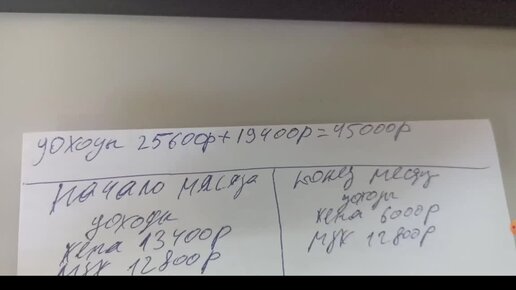 доходы 25600р+19400р=45000р
начало месяца
доходы
жена 13400р
муж 12800р
конец месяца
доходы
жена 6000р
муж 12800р